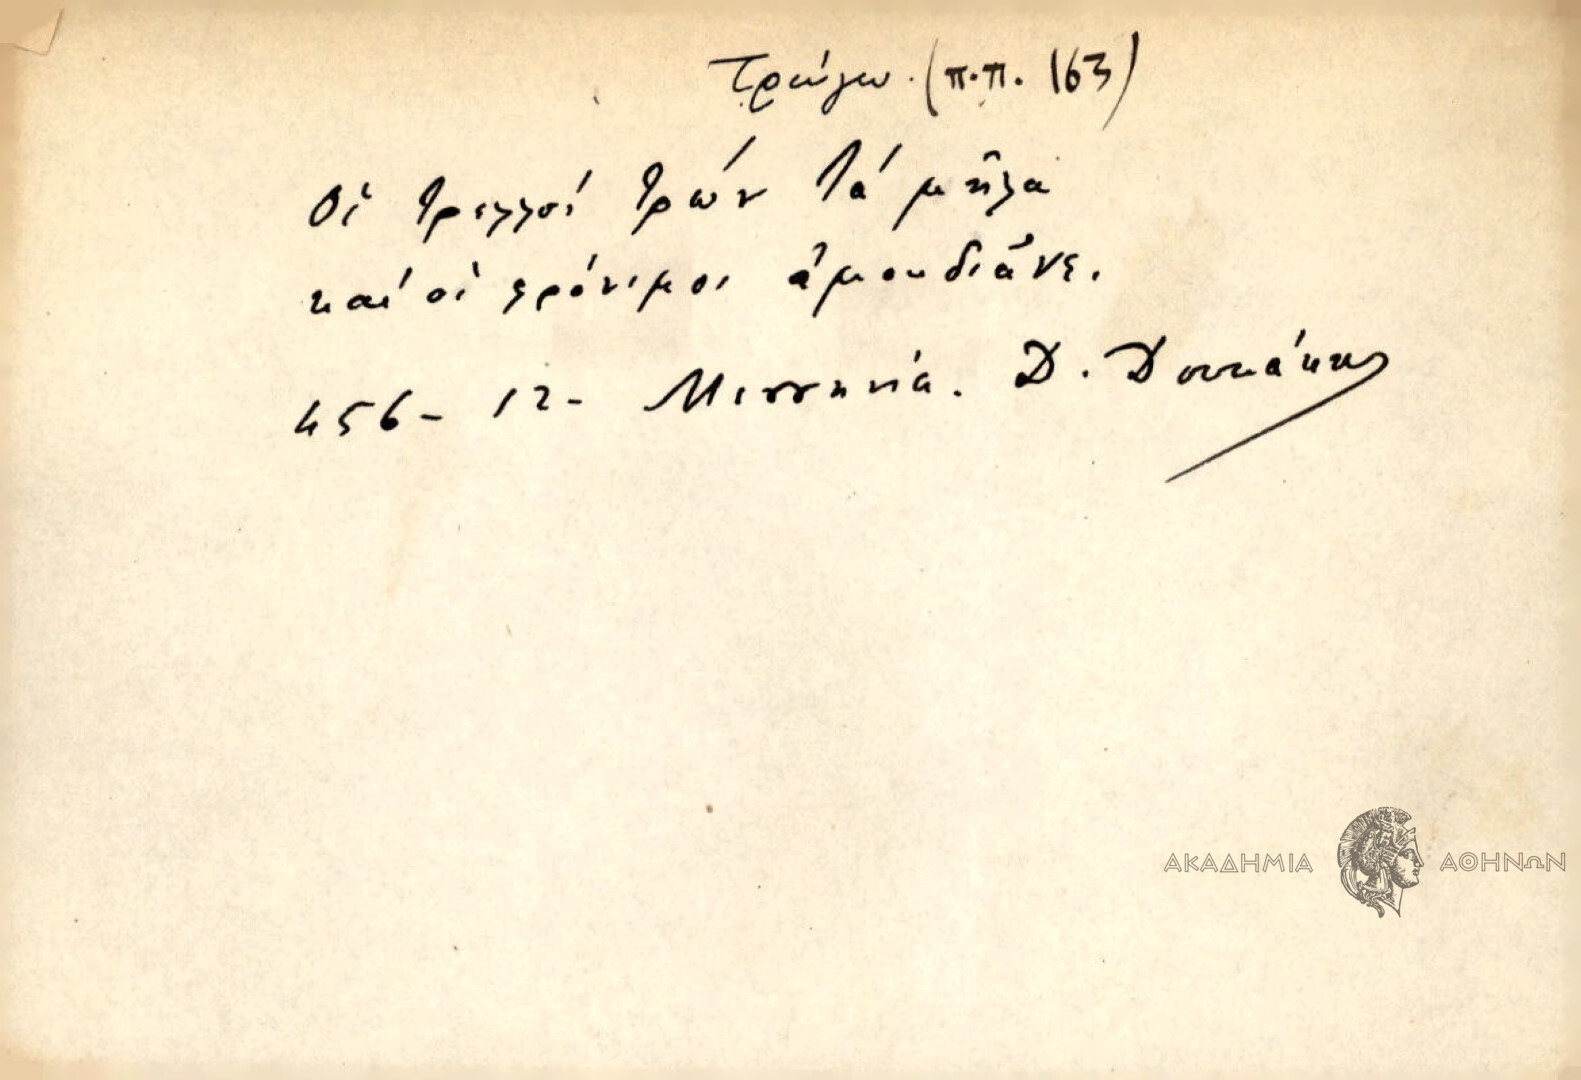 Τρώγω. (π.π. 163)
Οἱ τρελλοί τρών τά μῆλα
καί οἱ φρόνιμοι ἀμουδιᾶνε.
456 - 12 - Μεσσηνία. Δ. Δουκάκης
ΑΚΑΔΗΜΙΑ ΑΘΗΝΩΝ